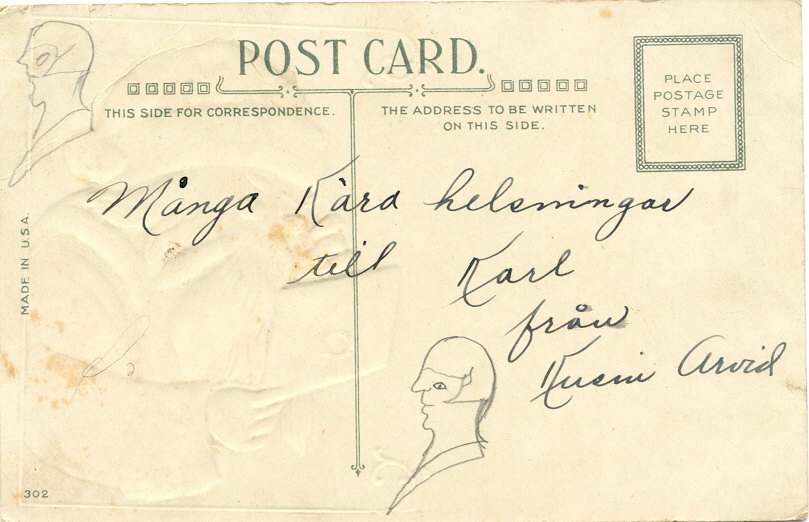 POST CARD.
THIS SIDE FOR CORRESPONDENCE.
THE ADDRESS TO BE WRITTEN
ON THIS SIDE.
PLACE
POSTAGE
STAMP
HERE
Många Kära helsningar
till Karl
från
Kusin Arvid
MADE IN U.S.A.
302